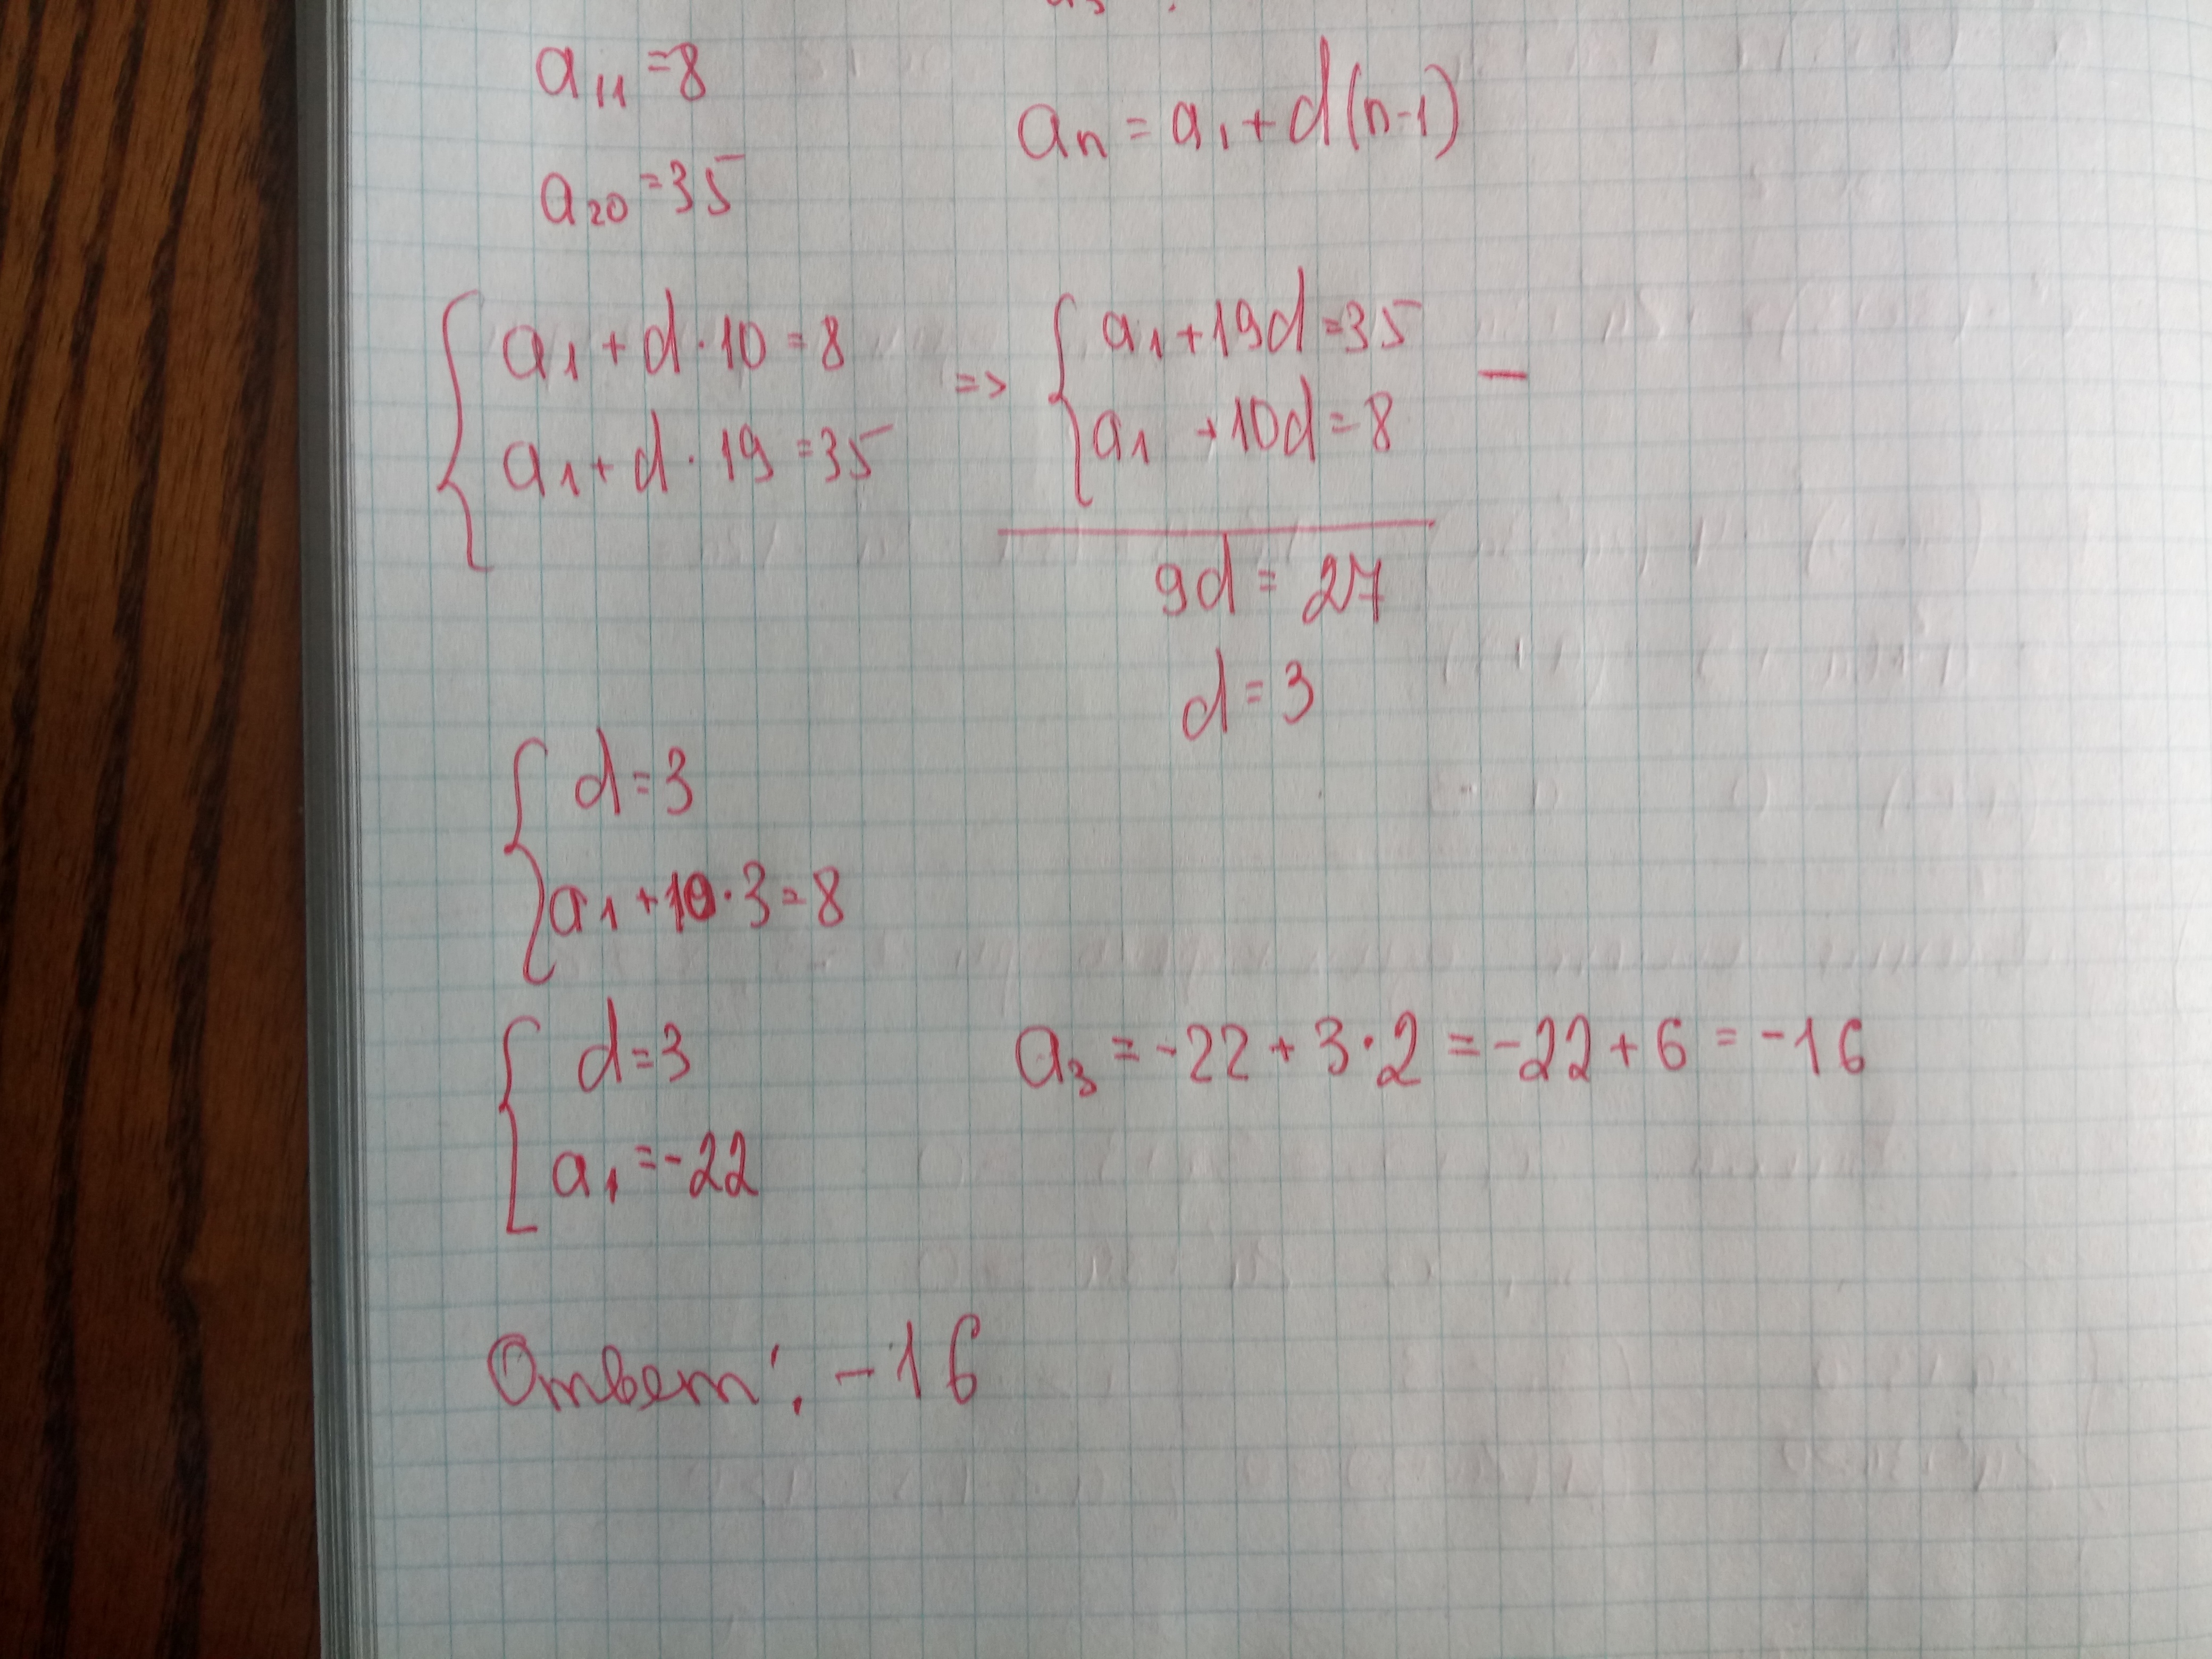 a₁₁ = 8
aₙ = a₁ + d(n-1)
a₂₀ = 35
a₁ + d · 10 = 8
a₁ + d · 19 = 35
=>
a₁ + 19d = 35
a₁ + 10d = 8
−
9d = 27
d = 3
d = 3
a₁ + 10 · 3 = 8
d = 3
a₁ = -22
a₃ = -22 + 3 · 2 = -22 + 6 = -16
Ответ: -16